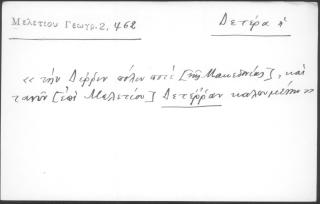 Μελετίου Γεωγρ. 2, 462
Δετέρα ἡ
« τὴν Δέρριν πόλιν ποτὲ [τῆς Μακεδονίας], καὶ
τανῦν [ἐπὶ Μελετίου] Δετέρραν καλουμένην »